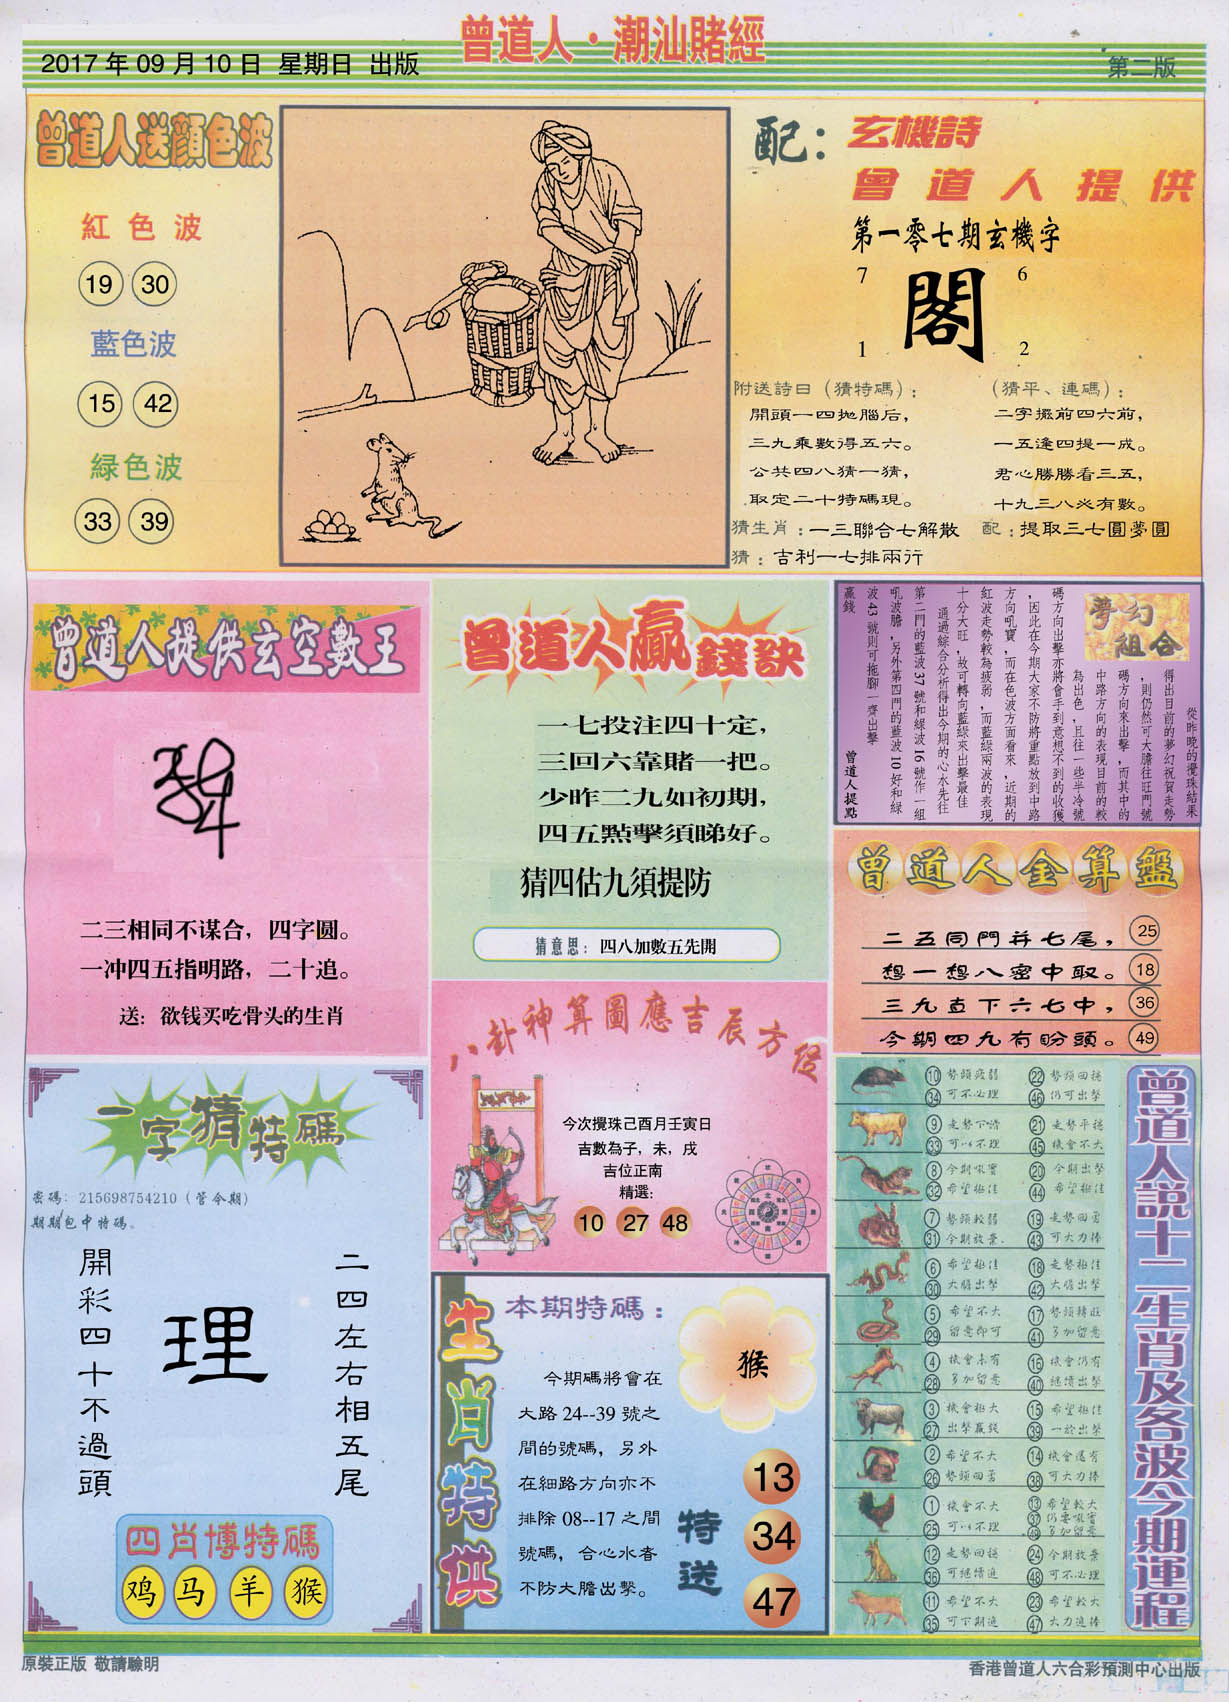 曾道人·潮汕賭經
2017年09月10日 星期日 出版
第二版
曾道人送顏色波
紅色波
19 30
藍色波
15 42
緑色波
33 39
配：玄機詩
曾道人提供
第一零七期玄機字
7 6
閣
1 2
附送詩日（猜特碼）：
開頭一四拋腦后，
三九乘數得五六。
公共四八猜一猜，
取定二十特碼現。
（猜平、連碼）：
二字擺前四六前，
一五逢四提一成。
君心勝勝看三五，
十九三八必有數。
猜生肖：一三聯合七解散
配：提取三七圓夢圓
猜：吉利一七排兩行
曾道人提供玄空數王
二三相同不谋合，四字圆。
一冲四五指明路，二十追。
送：欲钱买吃骨头的生肖
曾道人贏錢訣
一七投注四十定，
三回六靠賭一把。
少昨二九如初期，
四五點擊須睇好。
猜四估九須提防
猜意思：四八加數五先開
夢幻
組合
從昨晚的攪珠結果
得出目前的夢幻祝賀走勢
，則仍然可大膽往旺門號
碼方向來出擊，而其中的
中路方向的表現目前的較
為出色，且往一些半冷號
碼方向出擊亦將會手到意想不到的收獲
，因此在今期大家不防將重點放到中路
方向吼寶，而在色波方面看來，近期的
紅波走勢較為疲弱，而藍綠兩波的表現
十分大旺，故可轉向藍綠來出擊最佳
通過綜合分析得出今期的心水先往
第二門的藍波37號和緑波16號作一組
吼波膽，另外第四門的藍波10好和緑
波43號則可拖腳一齊出擊
贏錢
曾道人提點
曾道人金算盤
二五同門并七尾， 25
想一想八密中取。 18
三九直下六七中， 36
今期四九有盼頭。 49
八卦神算圖應吉辰方位
今次攪珠己酉月壬寅日
吉數為子，未，戌
吉位正南
精選：
10 27 48
一字猜特碼
密碼：215698754210（管今期）
期期包中特碼。
二四左右相五尾
理
開彩四十不過頭
四肖博特碼
鸡 马 羊 猴
生肖特供
本期特碼：
猴
今期碼將會在
大路24--39號之
間的號碼，另外
在細路方向亦不
排除08--17之間
號碼，合心水者
不防大膽出擊。
特送
13
34
47
曾道人説十二生肖及各波今期運程
10 勢頭疲弱 22 勢頭回穩
34 可不必理 46 仍可出擊
9 走勢下滑 21 走勢平穩
33 可以不理 45 機會不大
8 今期吼寶 20 今期出擊
32 希望極佳 44 希望極佳
7 勢頭較弱 19 走勢回勇
31 今期放棄. 43 可大力捧
6 希望極佳 18 走勢極佳
30 大膽出擊 42 大膽出擊
5 希望不大 17 勢頭轉旺
29 留意即可 41 多加留意
4 機會未有 16 機會仍有
28 多加留意 40 繼續出擊
3 機會極大 15 希望極佳
27 出擊贏錢 39 一於出擊
2 希望不大 14 機會還有
26 勢頭回勇 38 可大力捧
1 機會不大 13 希望較大
37 仍要吼寶
25 可以不理 49 多加留意
12 走勢回穩 24 今期放棄
36 可繼續追 48 可不必理
11 希望不大 23 希望較大
35 可下期追 47 大力追捧
原裝正版 敬請驗明
香港曾道人六合彩預測中心出版